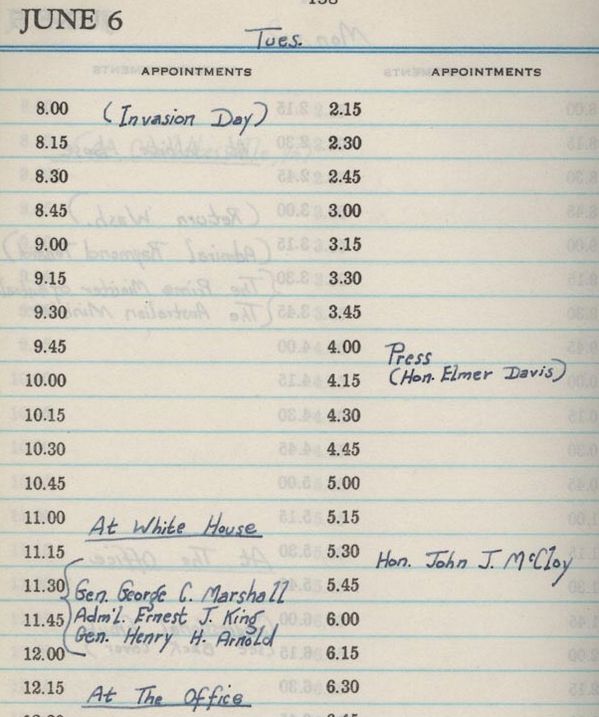 JUNE 6
Tues.
APPOINTMENTS
8.00 (Invasion Day)
8.15
8.30
8.45
9.00
9.15
9.30
9.45
10.00
10.15
10.30
10.45
11.00 At White House
11.15
11.30 Gen. George C. Marshall
11.45 Adm'l. Ernest J. King
Gen. Henry H. Arnold
12.00
12.15 At The Office
APPOINTMENTS
2.15
2.30
2.45
3.00
3.15
3.30
3.45
4.00 Press
4.15 (Hon. Elmer Davis)
4.30
4.45
5.00
5.15
5.30 Hon. John J. McCloy
5.45
6.00
6.15
6.30